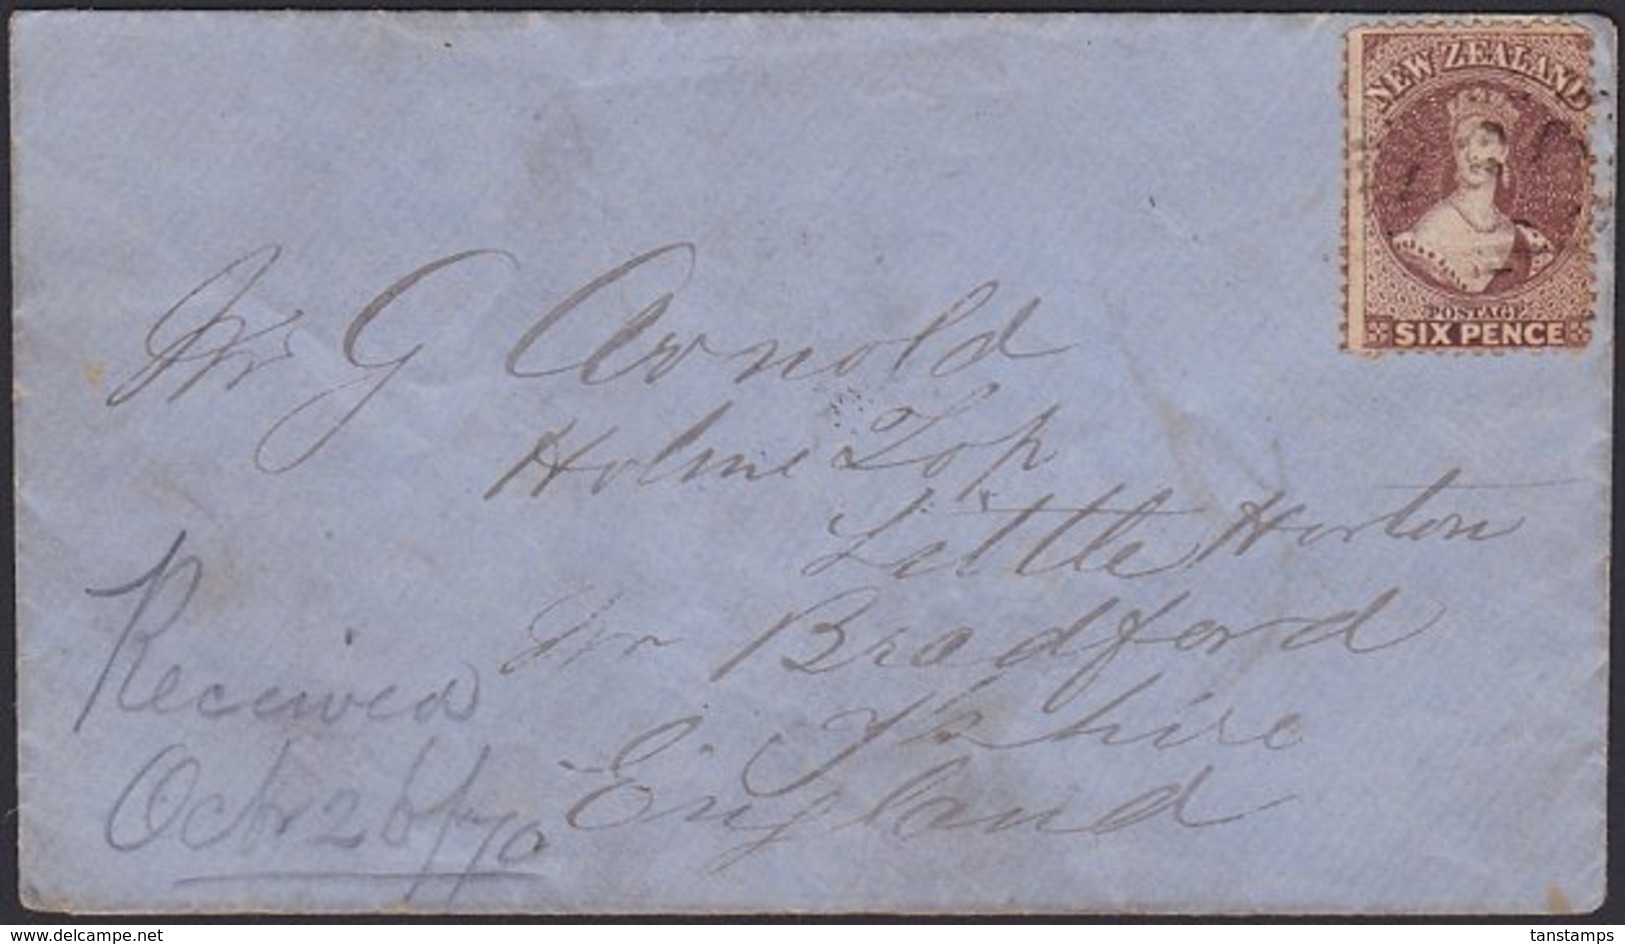 NEW ZEALAND
POSTAGE
SIX PENCE
Mr G Arnold
Holme Top
Little Horton
Nr Bradford
Yshire
England
Received
Octr 26/70
delcampe.net
tanstamps